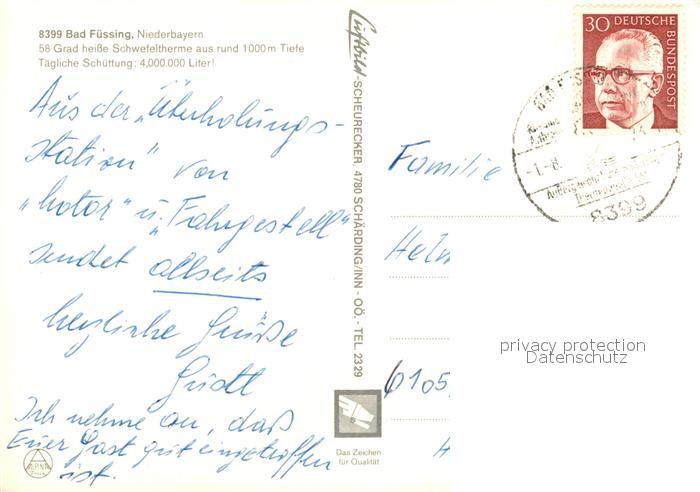 8399 Bad Füssing, Niederbayern
58 Grad heiße Schwefeltherme aus rund 1000 m Tiefe
Tägliche Schüttung: 4,000.000 Liter!
Aus der „Überholungs-
station" von
„Motor" u. „Fahrgestell"
sendet allseits
herzliche Grüße
Gustl
Ich nehme an, daß
Euer Gast gut eingetroffen
ist.
ALPINA
Druck
Luftbild-SCHEURECKER, 4780 SCHÄRDING/INN - OÖ. - TEL. 2329
Das Zeichen
für Qualität
30 DEUTSCHE
BUNDESPOST
BAD FÜSSING
-1.-8.
8399
Familie
Helm
6105
H
privacy protection
Datenschutz